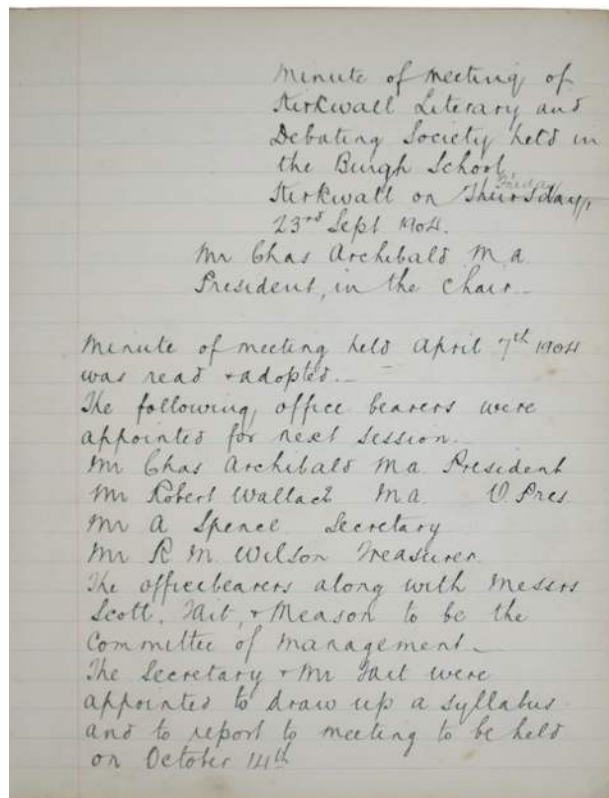 Minute of meeting of
Kirkwall Literary and
Debating Society held in
the Burgh School,
Friday
Kirkwall on Thursday,
23rd Sept 1904.
Mr Chas Archibald M.a.
President, in the chair_
Minute of meeting held April 7th 1904
was read & adopted._
The following office bearers were
appointed for next session._
Mr Chas Archibald Ma. President
Mr Robert Wallace Ma. V. Pres
Mr A Spence Secretary
Mr R M. Wilson Treasurer
The officebearers along with Messrs
Scott, Tait, & Meason to be the
Committee of Management_
The Secretary & Mr Tait were
appointed to draw up a syllabus
and to report to meeting to be held
on October 14th